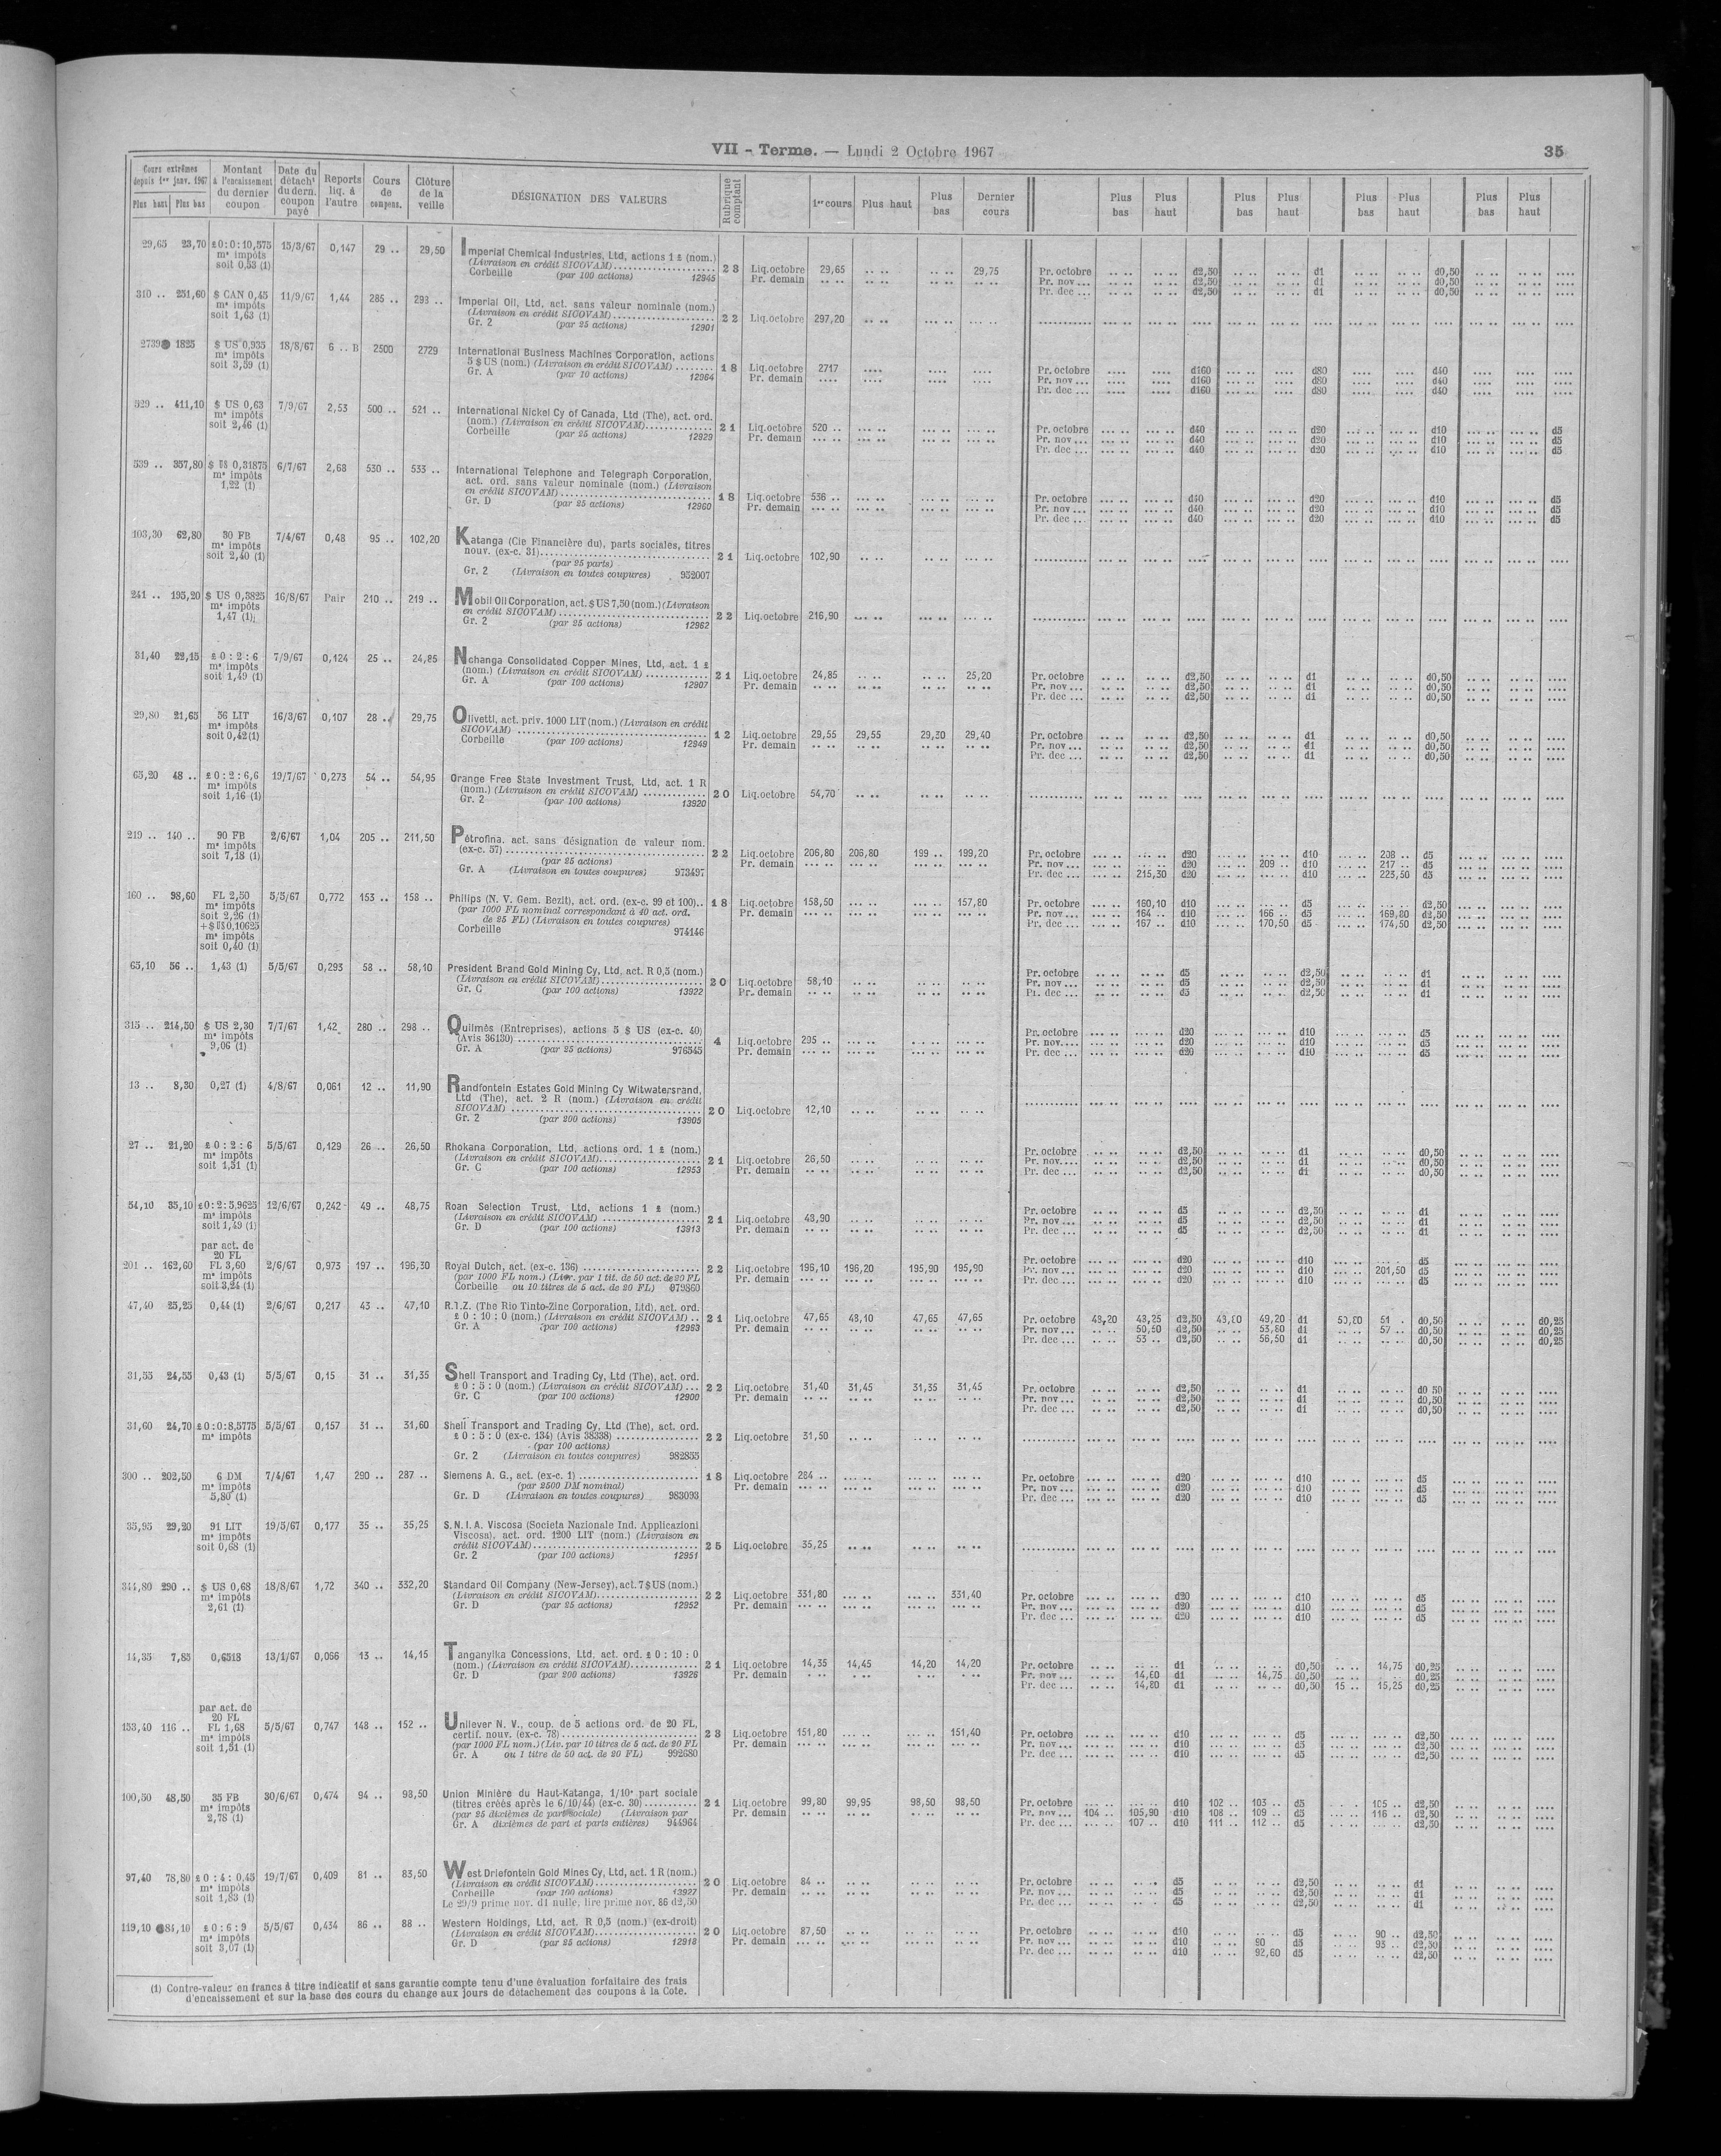 VII - Terme. — Lundi 2 Octobre 1967
35
Cours extrêmes depuis 1er janv. 1967 Plus haut Plus bas
Montant à l'encaissement du dernier coupon
Date du détacht du dern. coupon payé
Reports liq. à l'autre
Cours de compens.
Clôture de la veille
DÉSIGNATION DES VALEURS
Rubrique comptant
1er cours Plus haut Plus bas Dernier cours
Plus bas Plus haut Plus bas Plus haut Plus bas Plus haut Plus bas Plus haut
29,65 23,70 £0:0:10,575 15/3/67 0,147 29 .. 29,50 Imperial Chemical Industries, Ltd, actions 1 £ (nom.)
ms impôts (Livraison en crédit SICOVAM) 23 Liq.octobre 29,65 .. .. .. .. 29,75 Pr. octobre d2,50 d1 d0,50
soit 0,53 (1) Corbeille (par 100 actions) 12945 Pr. demain Pr. nov ... d2,50 d1 d0,50
Pr. dec ... d2,50 d1 d0,50
310 .. 251,60 $ CAN 0,45 11/9/67 1,44 285 .. 293 .. Imperial Oil, Ltd, act. sans valeur nominale (nom.)
ms impôts (Livraison en crédit SICOVAM)
soit 1,63 (1) Gr. 2 (par 25 actions) 12901 22 Liq.octobre 297,20
2739 1825 $ US 0,935 18/8/67 6 .. B 2500 2729 International Business Machines Corporation, actions
ms impôts 5 $ US (nom.) (Livraison en crédit SICOVAM) 18 Liq.octobre 2717 Pr. octobre d160 d80 d40
soit 3,59 (1) Gr. A (par 10 actions) 12964 Pr. demain Pr. nov ... d160 d80 d40
Pr. dec ... d160 d80 d40
529 .. 411,10 $ US 0,63 7/9/67 2,53 500 .. 521 .. International Nickel Cy of Canada, Ltd (The), act. ord.
ms impôts (nom.) (Livraison en crédit SICOVAM) 21 Liq.octobre 520 .. Pr. octobre d40 d20 d10 d5
soit 2,46 (1) Corbeille (par 25 actions) 12929 Pr. demain Pr. nov ... d40 d20 d10 d5
Pr. dec ... d40 d20 d10 d5
539 .. 357,80 $ US 0,31875 6/7/67 2,68 530 .. 533 .. International Telephone and Telegraph Corporation,
ms impôts act. ord. sans valeur nominale (nom.) (Livraison
1,22 (1) en crédit SICOVAM) 18 Liq.octobre 536 .. Pr. octobre d40 d20 d10 d5
Gr. D (par 25 actions) 12960 Pr. demain Pr. nov ... d40 d20 d10 d5
Pr. dec ... d40 d20 d10 d5
103,30 62,80 30 FB 7/4/67 0,48 95 .. 102,20 Katanga (Cie Financière du), parts sociales, titres
ms impôts nouv. (ex-c. 31) 21 Liq.octobre 102,90
soit 2,40 (1) (par 25 parts)
Gr. 2 (Livraison en toutes coupures) 952007
241 .. 195,20 $ US 0,3825 16/8/67 Pair 210 .. 219 .. Mobil Oil Corporation, act. $ US 7,50 (nom.) (Livraison
ms impôts en crédit SICOVAM) 22 Liq.octobre 216,90
1,47 (1) Gr. 2 (par 25 actions) 12962
31,40 22,15 £ 0 : 2 : 6 7/9/67 0,124 25 .. 24,85 Nchanga Consolidated Copper Mines, Ltd, act. 1 £
ms impôts (nom.) (Livraison en crédit SICOVAM) 21 Liq.octobre 24,85 25,20 Pr. octobre d2,50 d1 d0,50
soit 1,49 (1) Gr. A (par 100 actions) 12907 Pr. demain Pr. nov ... d2,50 d1 d0,50
Pr. dec ... d2,50 d1 d0,50
29,80 21,65 56 LIT 16/3/67 0,107 28 .. 29,75 Olivetti, act. priv. 1000 LIT (nom.) (Livraison en crédit
ms impôts SICOVAM) 12 Liq.octobre 29,55 29,55 29,30 29,40 Pr. octobre d2,50 d1 d0,50
soit 0,42 (1) Corbeille (par 100 actions) 12949 Pr. demain Pr. nov ... d2,50 d1 d0,50
Pr. dec ... d2,50 d1 d0,50
65,20 48 .. £ 0 : 2 : 6,6 19/7/67 0,273 54 .. 54,95 Orange Free State Investment Trust, Ltd, act. 1 R
ms impôts (nom.) (Livraison en crédit SICOVAM) 20 Liq.octobre 54,70
soit 1,16 (1) Gr. 2 (par 100 actions) 13920
219 .. 140 .. 90 FB 2/6/67 1,04 205 .. 211,50 Pétrofina, act. sans désignation de valeur nom.
ms impôts (ex-c. 57) 22 Liq.octobre 206,80 206,80 199 .. 199,20 Pr. octobre d20 d10 208 .. d5
soit 7,18 (1) (par 25 actions) Pr. demain Pr. nov ... d20 209 .. d10 217 .. d5
Gr. A (Livraison en toutes coupures) 973497 Pr. dec ... 215,30 d20 d10 223,50 d5
160 .. 98,60 FL 2,50 5/5/67 0,772 153 .. 158 .. Philips (N. V. Gem. Bezit), act. ord. (ex-c. 99 et 100).. 18 Liq.octobre 158,50 157,80 Pr. octobre 160,10 d10 d5 d2,50
ms impôts (par 1000 FL nominal correspondant à 40 act. ord. Pr. demain Pr. nov ... 164 .. d10 166 .. d5 169,80 d2,50
soit 2,26 (1) de 25 FL) (Livraison en toutes coupures) Pr. dec ... 167 .. d10 170,50 d5 174,50 d2,50
+ $ US 0,10625 Corbeille 974146
ms impôts
soit 0,40 (1)
65,10 56 .. 1,43 (1) 5/5/67 0,293 58 .. 58,10 President Brand Gold Mining Cy, Ltd, act. R 0,5 (nom.)
(Livraison en crédit SICOVAM) 20 Liq.octobre 58,10 Pr. octobre d5 d2,50 d1
Gr. C (par 100 actions) 13922 Pr. demain Pr. nov ... d5 d2,50 d1
Pr. dec ... d5 d2,50 d1
315 .. 214,50 $ US 2,30 7/7/67 1,42 280 .. 298 .. Quilmès (Entreprises), actions 5 $ US (ex-c. 40)
ms impôts (Avis 36130) 4 Liq.octobre 295 .. Pr. octobre d20 d10 d5
9,06 (1) Gr. A (par 25 actions) 976545 Pr. demain Pr. nov.... d20 d10 d5
Pr. dec ... d20 d10 d5
13 .. 8,30 0,27 (1) 4/8/67 0,061 12 .. 11,90 Randfontein Estates Gold Mining Cy Witwatersrand,
Ltd (The), act. 2 R (nom.) (Livraison en crédit
SICOVAM) 20 Liq.octobre 12,10
Gr. 2 (par 200 actions) 13905
27 .. 21,20 £ 0 : 2 : 6 5/5/67 0,129 26 .. 26,50 Rhokana Corporation, Ltd, actions ord. 1 £ (nom.)
ms impôts (Livraison en crédit SICOVAM) 21 Liq.octobre 26,50 Pr. octobre d2,50 d1 d0,50
soit 1,51 (1) Gr. C (par 100 actions) 12953 Pr. demain Pr. nov.... d2,50 d1 d0,50
Pr. dec ... d2,50 d1 d0,50
54,10 35,10 £0:2:5,9625 12/6/67 0,242 49 .. 48,75 Roan Selection Trust, Ltd, actions 1 £ (nom.)
ms impôts (Livraison en crédit SICOVAM) 21 Liq.octobre 48,90 Pr. octobre d5 d2,50 d1
soit 1,49 (1) Gr. D (par 100 actions) 13913 Pr. demain Pr. nov ... d5 d2,50 d1
Pr. dec ... d5 d2,50 d1
par act. de
20 FL
201 .. 162,60 FL 3,60 2/6/67 0,973 197 .. 196,30 Royal Dutch, act. (ex-c. 136) 22 Liq.octobre 196,10 196,20 195,90 195,90 Pr. octobre d20 d10 d5
ms impôts (par 1000 FL nom.) (Livr. par 1 tit. de 50 act. de 20 FL Pr. demain Pr. nov ... d20 d10 201,50 d5
soit 3,24 (1) Corbeille ou 10 titres de 5 act. de 20 FL) 979860 Pr. dec ... d20 d10 d5
47,40 25,25 0,44 (1) 2/6/67 0,217 43 .. 47,10 R.T.Z. (The Rio Tinto-Zinc Corporation, Ltd), act. ord.
£ 0 : 10 : 0 (nom.) (Livraison en crédit SICOVAM) .. 21 Liq.octobre 47,65 48,10 47,65 47,65 Pr. octobre 48,20 48,25 d2,50 48,80 49,20 d1 50,80 51 . d0,50 d0,25
Gr. A (par 100 actions) 12963 Pr. demain Pr. nov ... 50,60 d2,50 53,80 d1 57 .. d0,50 d0,25
Pr. dec ... 53 .. d2,50 56,50 d1 d0,50 d0,25
31,55 24,55 0,43 (1) 5/5/67 0,15 31 .. 31,35 Shell Transport and Trading Cy, Ltd (The), act. ord.
£ 0 : 5 : 0 (nom.) (Livraison en crédit SICOVAM) ... 22 Liq.octobre 31,40 31,45 31,35 31,45 Pr. octobre d2,50 d1 d0 50
Gr. C (par 100 actions) 12900 Pr. demain Pr. nov ... d2,50 d1 d0,50
Pr. dec ... d2,50 d1 d0,50
31,60 24,70 £0:0:8,5775 5/5/67 0,157 31 .. 31,60 Shell Transport and Trading Cy, Ltd (The), act. ord.
ms impôts £ 0 : 5 : 0 (ex-c. 134) (Avis 38338) 22 Liq.octobre 31,50
(par 100 actions)
Gr. 2 (Livraison en toutes coupures) 982855
300 .. 202,50 6 DM 7/4/67 1,47 290 .. 287 .. Siemens A. G., act. (ex-c. 1) 18 Liq.octobre 284 .. Pr. octobre d20 d10 d5
ms impôts (par 2500 DM nominal) Pr. demain Pr. nov ... d20 d10 d5
5,80 (1) Gr. D (Livraison en toutes coupures) 983093 Pr. dec ... d20 d10 d5
35,95 29,20 91 LIT 19/5/67 0,177 35 .. 35,25 S.N.I.A. Viscosa (Societa Nazionale Ind. Applicazioni
ms impôts Viscosa), act. ord. 1200 LIT (nom.) (Livraison en
soit 0,68 (1) crédit SICOVAM) 25 Liq.octobre 35,25
Gr. 2 (par 100 actions) 12951
344,80 290 .. $ US 0,68 18/8/67 1,72 340 .. 332,20 Standard Oil Company (New-Jersey), act. 7 $ US (nom.)
ms impôts (Livraison en crédit SICOVAM) 22 Liq.octobre 331,80 331,40 Pr. octobre d20 d10 d5
2,61 (1) Gr. D (par 25 actions) 12952 Pr. demain Pr. nov ... d20 d10 d5
Pr. dec ... d20 d10 d5
14,35 7,85 0,6518 13/1/67 0,066 13 .. 14,15 Tanganyika Concessions, Ltd, act. ord. £ 0 : 10 : 0
(nom.) (Livraison en crédit SICOVAM) 21 Liq.octobre 14,35 14,45 14,20 14,20 Pr. octobre d1 d0,50 14,75 d0,25
Gr. D (par 200 actions) 13926 Pr. demain Pr. nov ... 14,60 d1 14,75 d0,50 d0,25
Pr. dec ... 14,80 d1 d0,50 15 .. 15,25 d0,25
par act. de
20 FL
153,40 116 .. FL 1,68 5/5/67 0,747 148 .. 152 .. Unilever N. V., coup. de 5 actions ord. de 20 FL,
ms impôts certif. nouv. (ex-c. 78) 23 Liq.octobre 151,80 151,40 Pr. octobre d10 d5 d2,50
soit 1,51 (1) (par 1000 FL nom.) (Liv. par 10 titres de 5 act. de 20 FL Pr. demain Pr. nov ... d10 d5 d2,50
Gr. A ou 1 titre de 50 act. de 20 FL) 992680 Pr. dec ... d10 d5 d2,50
100,50 48,50 35 FB 30/6/67 0,474 94 .. 98,50 Union Minière du Haut-Katanga, 1/10e part sociale
ms impôts (titres créés après le 6/10/44) (ex-c. 30) 21 Liq.octobre 99,80 99,95 98,50 98,50 Pr. octobre d10 102 .. 103 .. d5 105 .. d2,50
2,78 (1) (par 25 dixièmes de part sociale) (Livraison par Pr. demain Pr. nov ... 104 .. 105,90 d10 108 .. 109 .. d5 116 .. d2,50
Gr. A dixièmes de part et parts entières) 944964 Pr. dec ... 107 .. d10 111 .. 112 .. d5 d2,50
97,40 78,80 £ 0 : 4 : 0,45 19/7/67 0,409 81 .. 83,50 West Driefontein Gold Mines Cy, Ltd, act. 1 R (nom.)
ms impôts (Livraison en crédit SICOVAM) 20 Liq.octobre 84 .. Pr. octobre d5 d2,50 d1
soit 1,83 (1) Corbeille (par 100 actions) 13927 Pr. demain Pr. nov ... d5 d2,50 d1
Le 29/9 prime nov. d1 nulle, lire prime nov. 86 d2,50 Pr. dec ... d5 d2,50 d1
119,10 84,10 £ 0 : 6 : 9 5/5/67 0,434 86 .. 88 .. Western Holdings, Ltd, act. R 0,5 (nom.) (ex-droit)
ms impôts (Livraison en crédit SICOVAM) 20 Liq.octobre 87,50 Pr. octobre d10 d5 90 .. d2,50
soit 3,07 (1) Gr. D (par 25 actions) 12918 Pr. demain Pr. nov ... d10 90 d5 93 .. d2,50
Pr. dec ... d10 92,60 d5 d2,50
(1) Contre-valeur en francs à titre indicatif et sans garantie compte tenu d'une évaluation forfaitaire des frais
d'encaissement et sur la base des cours du change aux jours de détachement des coupons à la Cote.